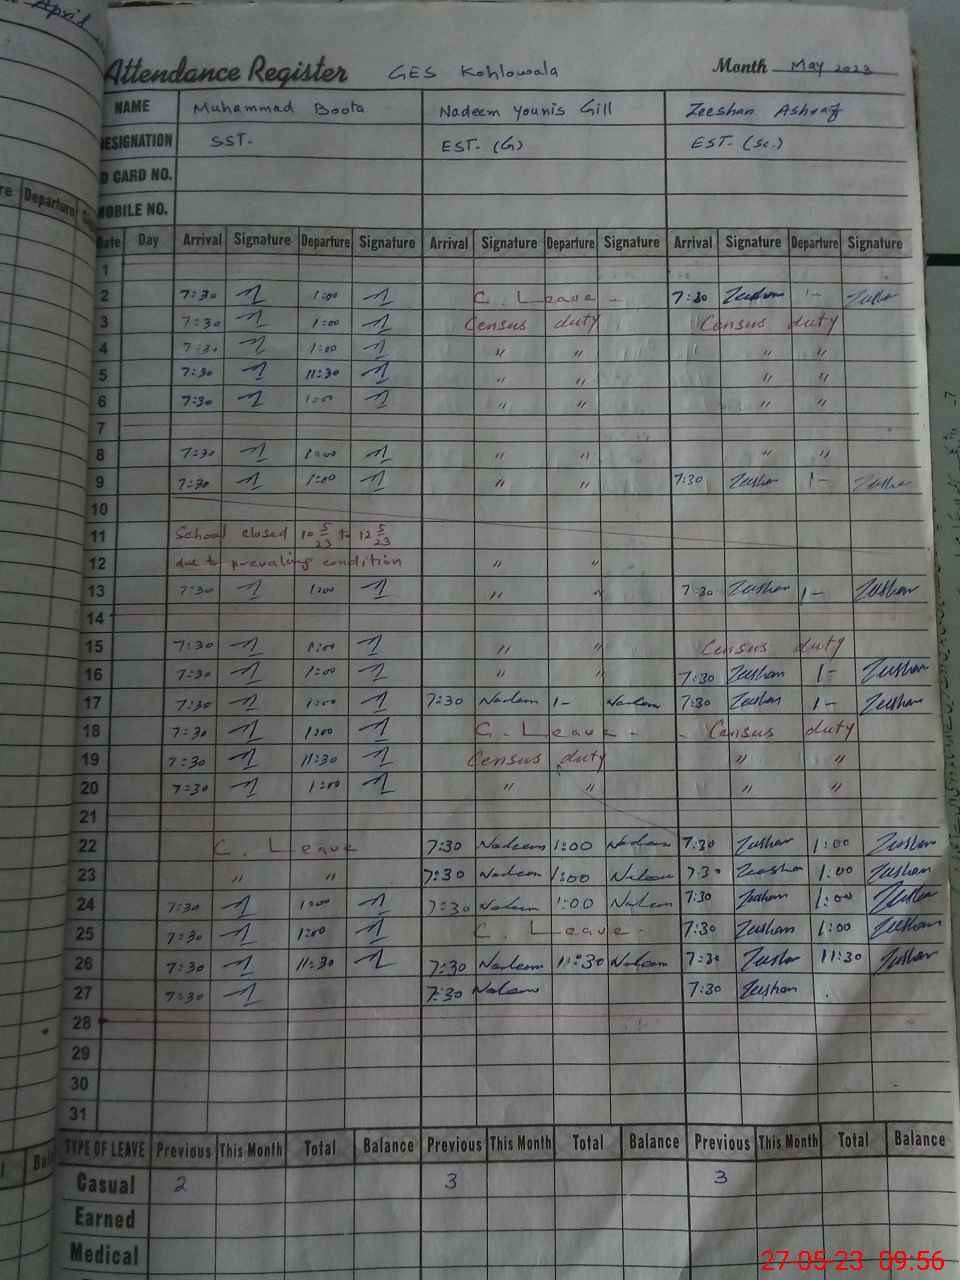 April
Attendance Register GES Kohlowala Month May 2023
NAME Muhammad Boota Nadeem Younis Gill Zeeshan Ashraf
DESIGNATION SST. EST. (G) EST. (Sc.)
D CARD NO.
MOBILE NO.
re Departure
Date Day Arrival Signature Departure Signature Arrival Signature Departure Signature Arrival Signature Departure Signature
1
2 7:30 1:00 C. Leave - 7:30 Zeeshan 1-
3 7:30 1:00 Census duty Census duty
4 7:30 1:00 " " " "
5 7:30 11:30 " " " "
6 7:30 1:00 " " " "
7
8 7:30 1:00 " " " "
9 7:30 1:00 " " 7:30 Zeeshan 1- Zeeshan
10
11 School closed 10 5/23 to 12 5/23
12 due to prevaling condition " "
13 7:30 1:00 " " 7:30 Zeeshan 1- Zeeshan
14
15 7:30 1:00 " " Census duty
16 7:30 1:00 " " 7:30 Zeeshan 1- Zeeshan
17 7:30 1:00 7:30 Nadeem 1- Nadeem 7:30 Zeeshan 1- Zeeshan
18 7:30 1:00 C. Leave - - Census duty
19 7:30 11:30 Census duty " "
20 7:30 1:00 " " " "
21
22 C. Leave 7:30 Nadeem 1:00 Nadeem 7:30 Zeeshan 1:00 Zeeshan
23 " " 7:30 Nadeem 1:00 Nadeem 7:30 Zeeshan 1:00 Zeeshan
24 7:30 1:00 7:30 Nadeem 1:00 Nadeem 7:30 Zeeshan 1:00 Zeeshan
25 7:30 1:00 C. Leave. 7:30 Zeeshan 1:00 Zeeshan
26 7:30 11:30 7:30 Nadeem 11:30 Nadeem 7:30 Zeeshan 11:30 Zeeshan
27 7:30 7:30 Nadeem 7:30 Zeeshan
28
29
30
31
TYPE OF LEAVE Previous This Month Total Balance Previous This Month Total Balance Previous This Month Total Balance
Casual 2 3 3
Earned
Medical
27-05-23 09:56